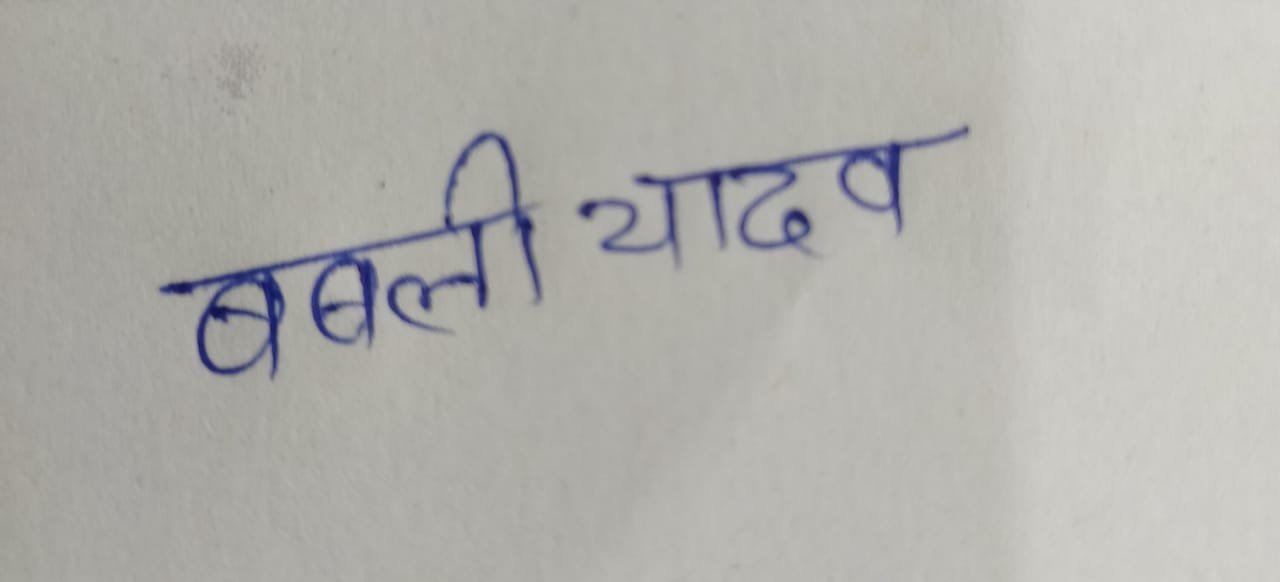 बबली यादव